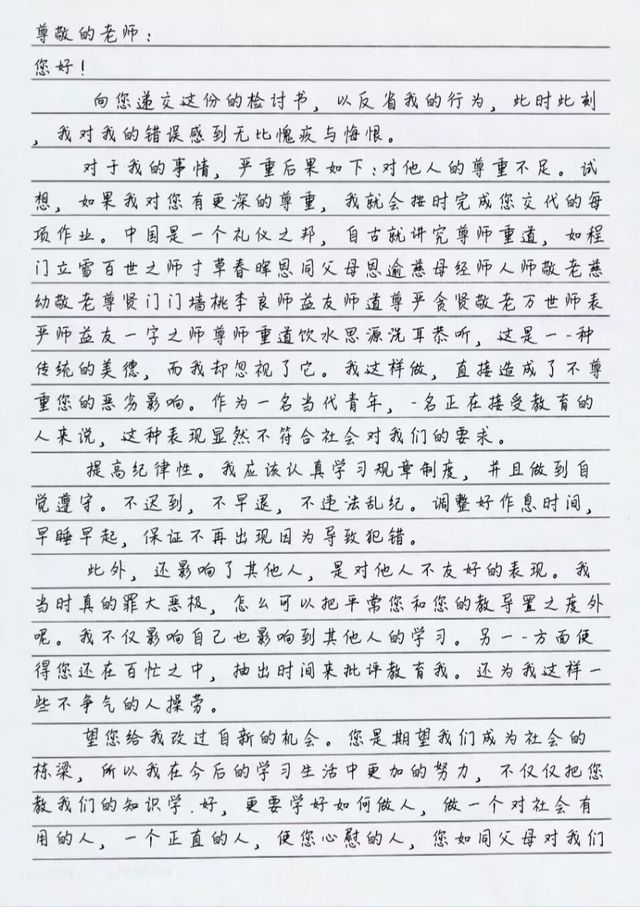 尊敬的老师:
您好!
向您递交这份的检讨书,以反省我的行为,此时此刻
,我对我的错误感到无比愧疚与悔恨。
对于我的事情,严重后果如下:对他人的尊重不足。试
想,如果我对您有更深的尊重,我就会按时完成您交代的每
项作业。中国是一个礼仪之邦,自古就讲究尊师重道,如程
门立雪百世之师寸草春晖恩同父母恩逾慈母经师人师敬老慈
幼敬老尊贤门门墙桃李良师益友师道尊严贪贤敬老万世师表
严师益友一字之师尊师重道饮水思源洗耳恭听,这是一-种
传统的美德,而我却忽视了它。我这样做,直接造成了不尊
重您的恶劣影响。作为一名当代青年,-名正在接受教育的
人来说,这种表现显然不符合社会对我们的要求。
提高纪律性。我应该认真学习规章制度,并且做到自
觉遵守。不迟到,不早退,不违法乱纪。调整好作息时间,
早睡早起,保证不再出现因为导致犯错。
此外,还影响了其他人,是对他人不友好的表现。我
当时真的罪大恶极,怎么可以把平常您和您的教导置之度外
呢。我不仅影响自己也影响到其他人的学习。另一-方面使
得您还在百忙之中,抽出时间来批评教育我。还为我这样一
些不争气的人操劳。
望您给我改过自新的机会。您是期望我们成为社会的
栋梁,所以我在今后的学习生活中更加的努力,不仅仅把您
教我们的知识学.好,更要学好如何做人,做一个对社会有
用的人,一个正直的人,使您心慰的人,您如同父母对我们